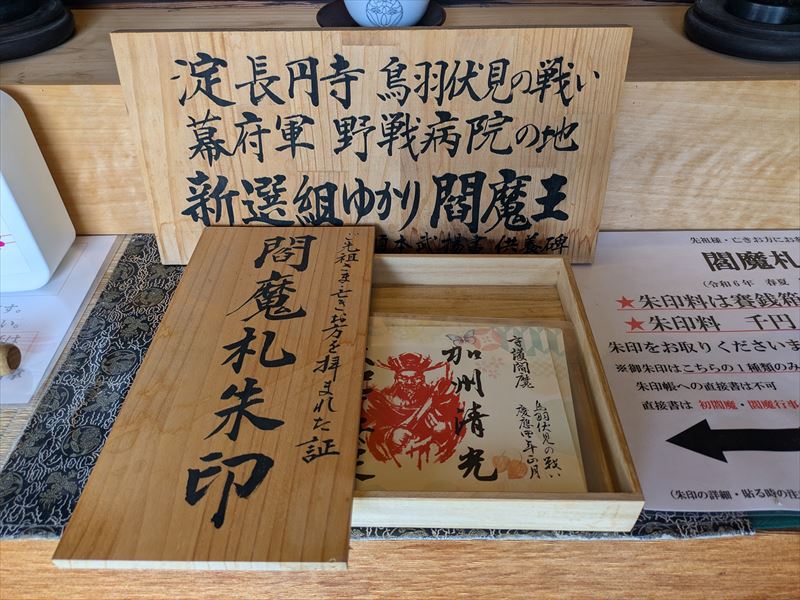 淀長円寺 鳥羽伏見の戦い
幕府軍 野戦病院の地
新選組ゆかり閻魔王
本武揚書 供養碑
閻魔札朱印
ご先祖さま・亡きお方を拝まれた証
守護閻魔
加州清光
鳥羽伏見の戦い
慶應四年正月
先祖様・亡きお方にお
閻魔札
(令和6年 春夏
★朱印料は賽銭箱
★朱印料 千円
朱印をお取りくださいま
※御朱印はこちらの1種類のみ
朱印帳への直接書は不可
直接書は 初閻魔・閻魔行事
(朱印の詳細・貼る時の注
す。
い。